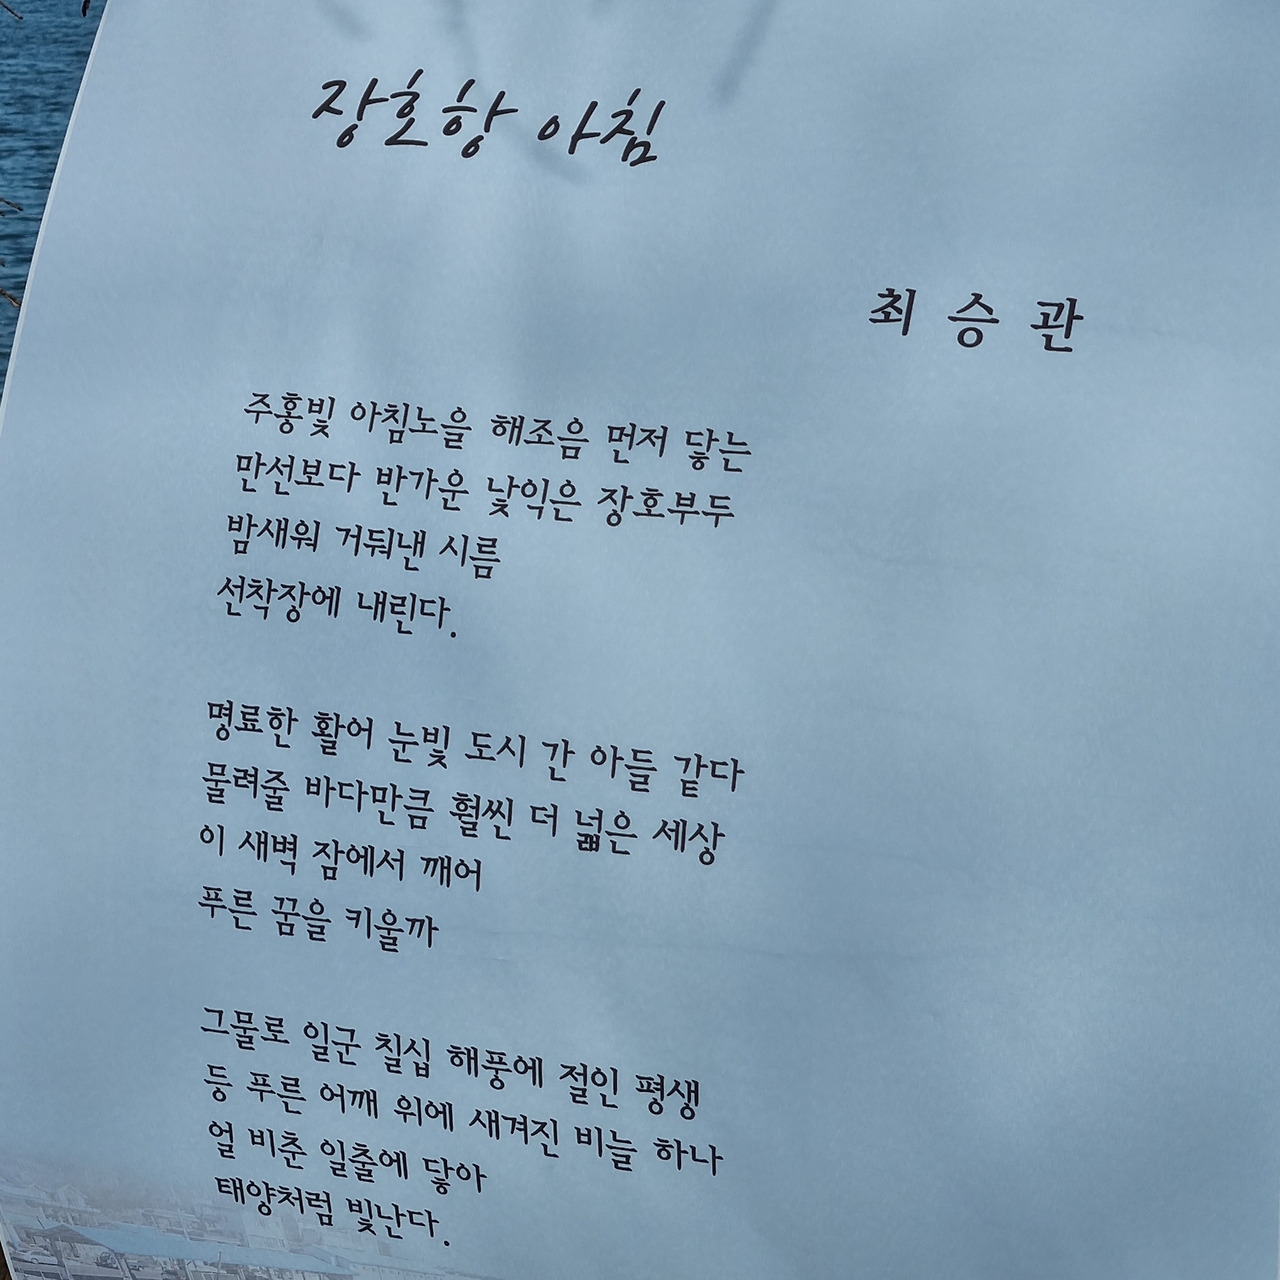 장호항 아침
최 승 관
주홍빛 아침노을 해조음 먼저 닿는
만선보다 반가운 낯익은 장호부두
밤새워 거둬낸 시름
선착장에 내린다.
명료한 활어 눈빛 도시 간 아들 같다
물려줄 바다만큼 훨씬 더 넓은 세상
이 새벽 잠에서 깨어
푸른 꿈을 키울까
그물로 일군 칠십 해풍에 절인 평생
등 푸른 어깨 위에 새겨진 비늘 하나
얼 비춘 일출에 닿아
태양처럼 빛난다.